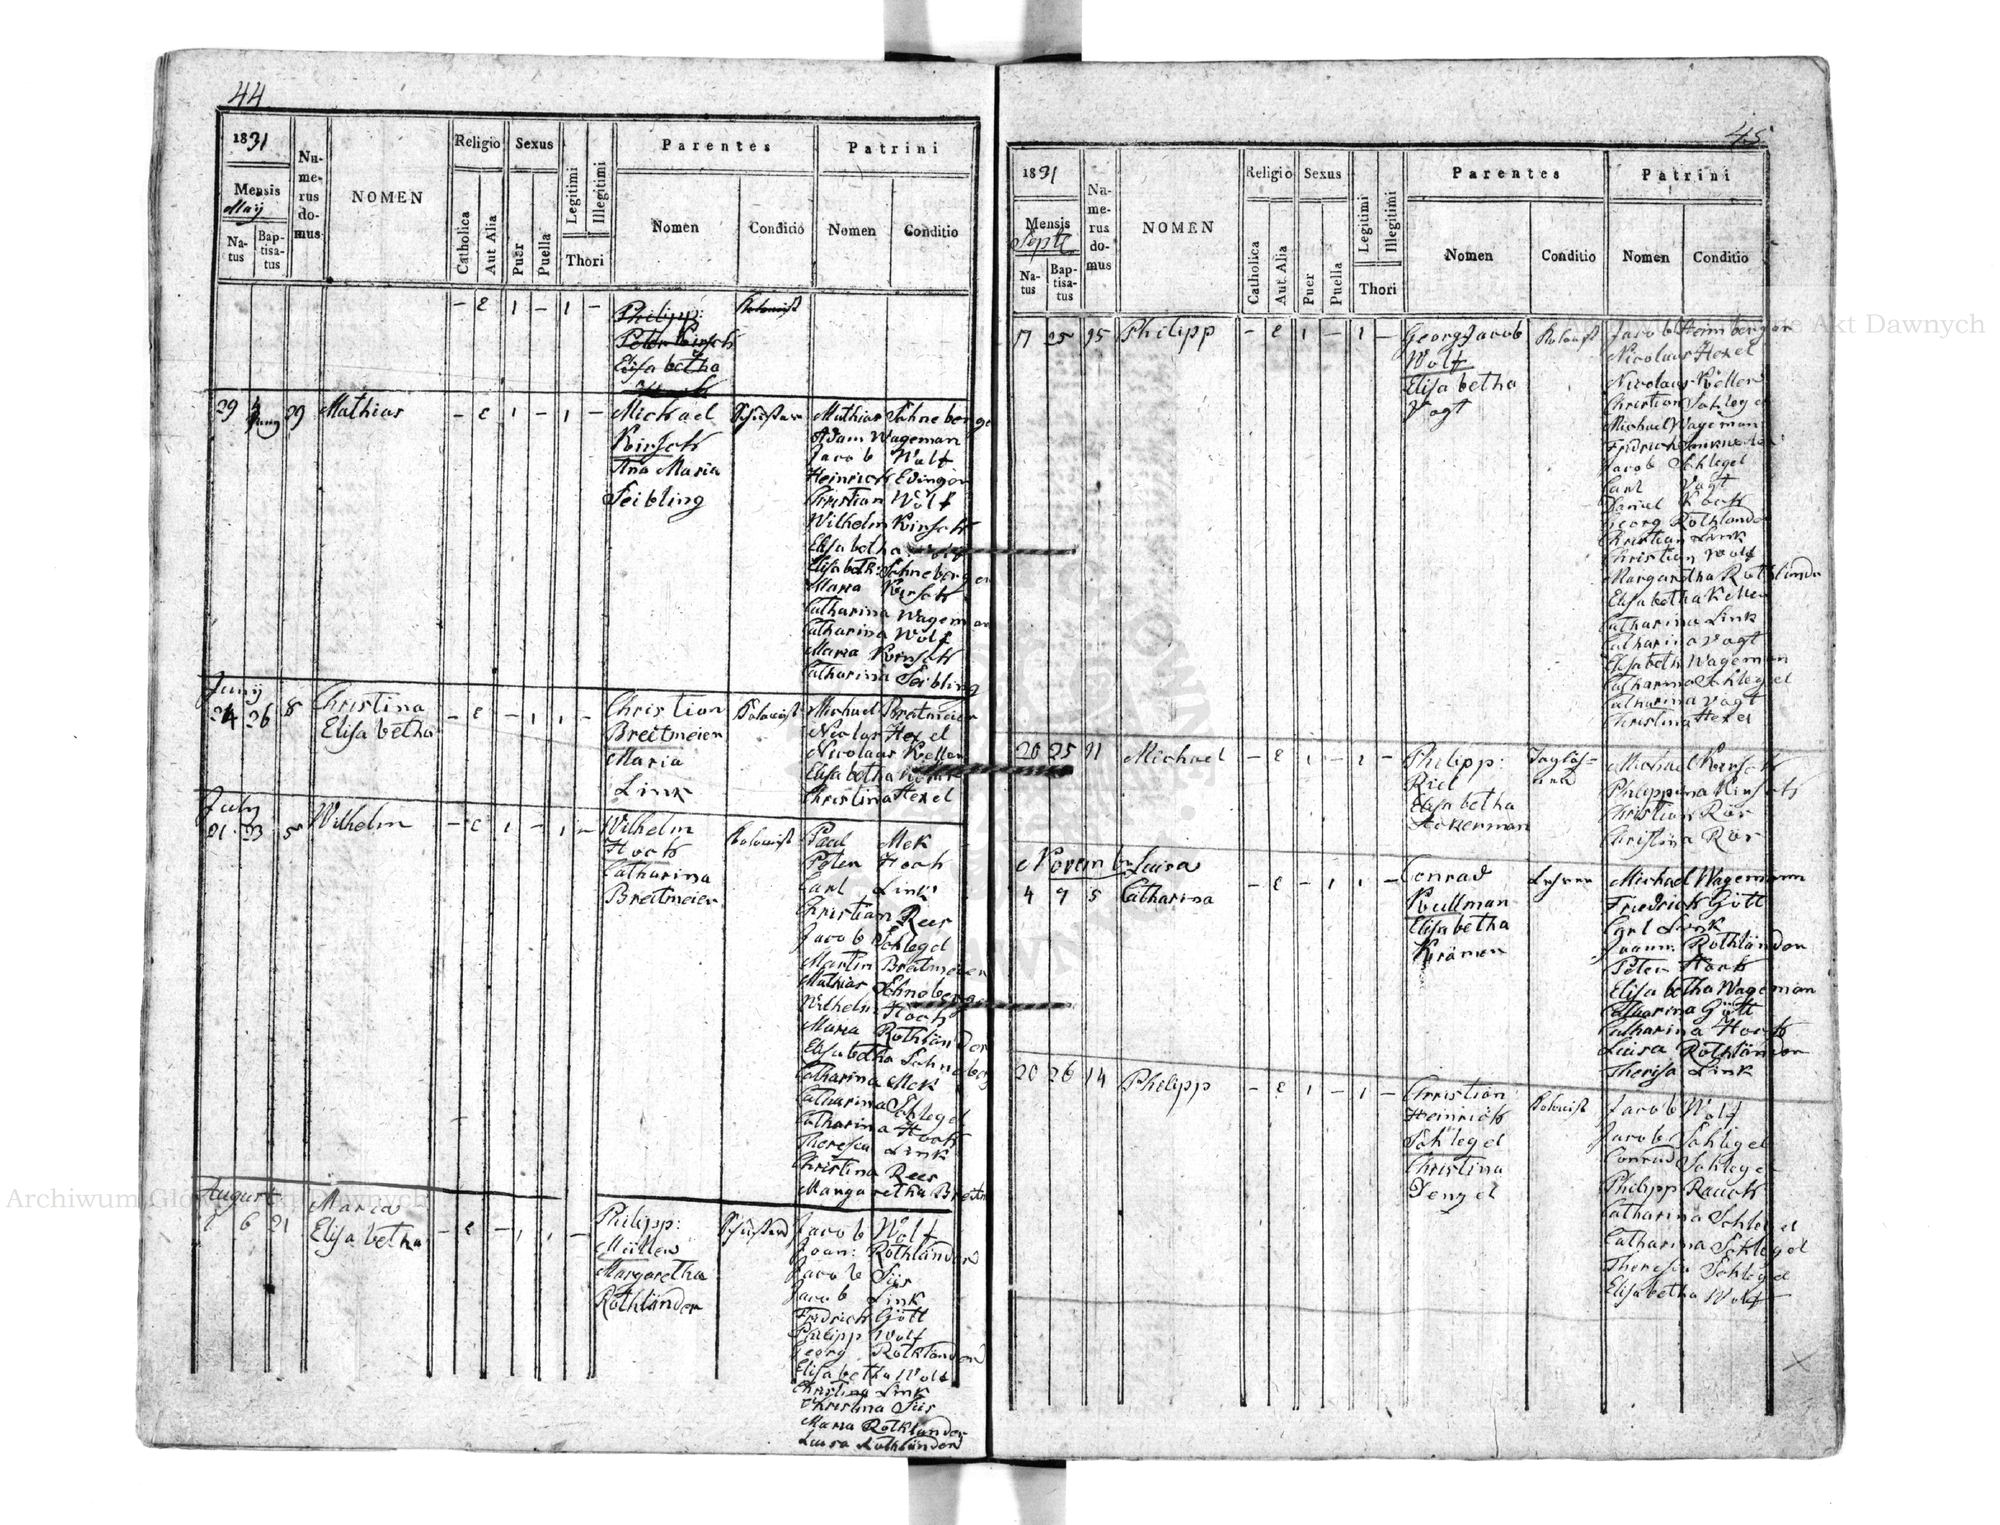 44
1831
Mensis
Maÿ
Na-
tus
Bap-
tisa-
tus
Nu-
me-
rus
do-
mus
NOMEN
Religio
Catholica
Aut Alia
Sexus
Puer
Puella
Legitimi
Illegitimi
Thori
Parentes
Nomen
Conditio
Patrini
Nomen
Conditio
- E 1 - 1 - Philipp: Kolonist
Peter Kirsch
Elisabetha
29 29 Mathias - E 1 - 1 - Michael Schuster Mathias Schneberger
Juny
Kirsch Adam Wageman
Ana Maria Jacob Wolf
Seibling Heinrich Edinger
Christian Wolf
Wilhelm Kirsch
Elisabetha Wolf
Elisabeth: Schneberger
Maria Kirsch
Catharina Wageman
Catharina Wolf
Maria Kirsch
Catharina Seibling
Junÿ
24 26 8 Christina - E - 1 1 - Christian Kolonist Michael Breitmeier
Elisabetha Breitmeier Nicolas Hexel
Maria Nicolaus Keller
Link Elisabetha
Christina Hexel
July
21 23 5 Wilhelm - E 1 - 1 - Wilhelm Kolonist Paul Mek
Hoch Peter Hoch
Catharina Carl Link
Breitmeier Christian Rees
Jacob Schlegel
Martin Breitmeier
Mathias Schneberger
Wilhelm Hoch
Maria Rothländer
Elisabetha Schneberg
Catharina Mek
Catharina Schlegel
Catharina Hoch
Theresia Link
Christina Rees
Margaretha Breitm
August
6 21 Maria
Elisabetha - E - 1 1 - Philipp: Schuster Jacob Wolf
Müller Joan: Rothländer
Margaretha Jacob Süs
Rothländer Jacob Link
Fridrich Gött
Philipp Wolf
Georg Rothländer
Elisabetha Wolf
Christina Link
Christina Süs
Maria Rothländer
Luisa Rothländer
45
1831
Mensis
Septr
Na-
tus
Bap-
tisa-
tus
Nu-
me-
rus
do-
mus
NOMEN
Religio
Catholica
Aut Alia
Sexus
Puer
Puella
Legitimi
Illegitimi
Thori
Parentes
Nomen
Conditio
Patrini
Nomen
Conditio
25 Philipp - E 1 - 1 - Georg Jacob Kolonist Jacob Heimberger
Wolf Nicolaus Hexel
Elisabetha Nicolaus Keller
Vogt Christian Schlegel
Michael Wageman
Fridrich
Jacob Schlegel
Carl Vogt
Daniel Koch
Georg Rothländer
Christian Link
Christian Wolf
Margaretha Rothländer
Elisabetha Keller
Catharina Link
Catharina Vogt
Elisabeth Wageman
Catharina Schlegel
Catharina Vogt
Christina Hexel
20 25 Michael - E 1 - 1 - Philipp: Michael Kirsch
Riel Philippina Kirsch
Elisabetha Christian Rör
Ackerman Christina Rör
Novembr
4 9 5 Luisa
Catharina - E - 1 1 - Conrad Lehrer Michael Wagemann
Kullman Friedrick Gött
Elisabetha Carl Link
Krämer Joann: Rothländer
Peter Hoch
Elisabetha Wageman
Catharina Gött
Catharina Hoch
Luisa Rothländer
Theresa Link
20 26 14 Philipp - E 1 - 1 - Christian Kolonist Jacob Wolf
Heinrich Jacob Schlegel
Schlegel Conrad Schlegel
Christina Philipp Rauch
Denzel Catharina Schlegel
Catharina Schlegel
Theresia Schlegel
Elisabetha Wolf
Archiwum Główne Akt Dawnych
Archiwum Główne Akt Dawnych